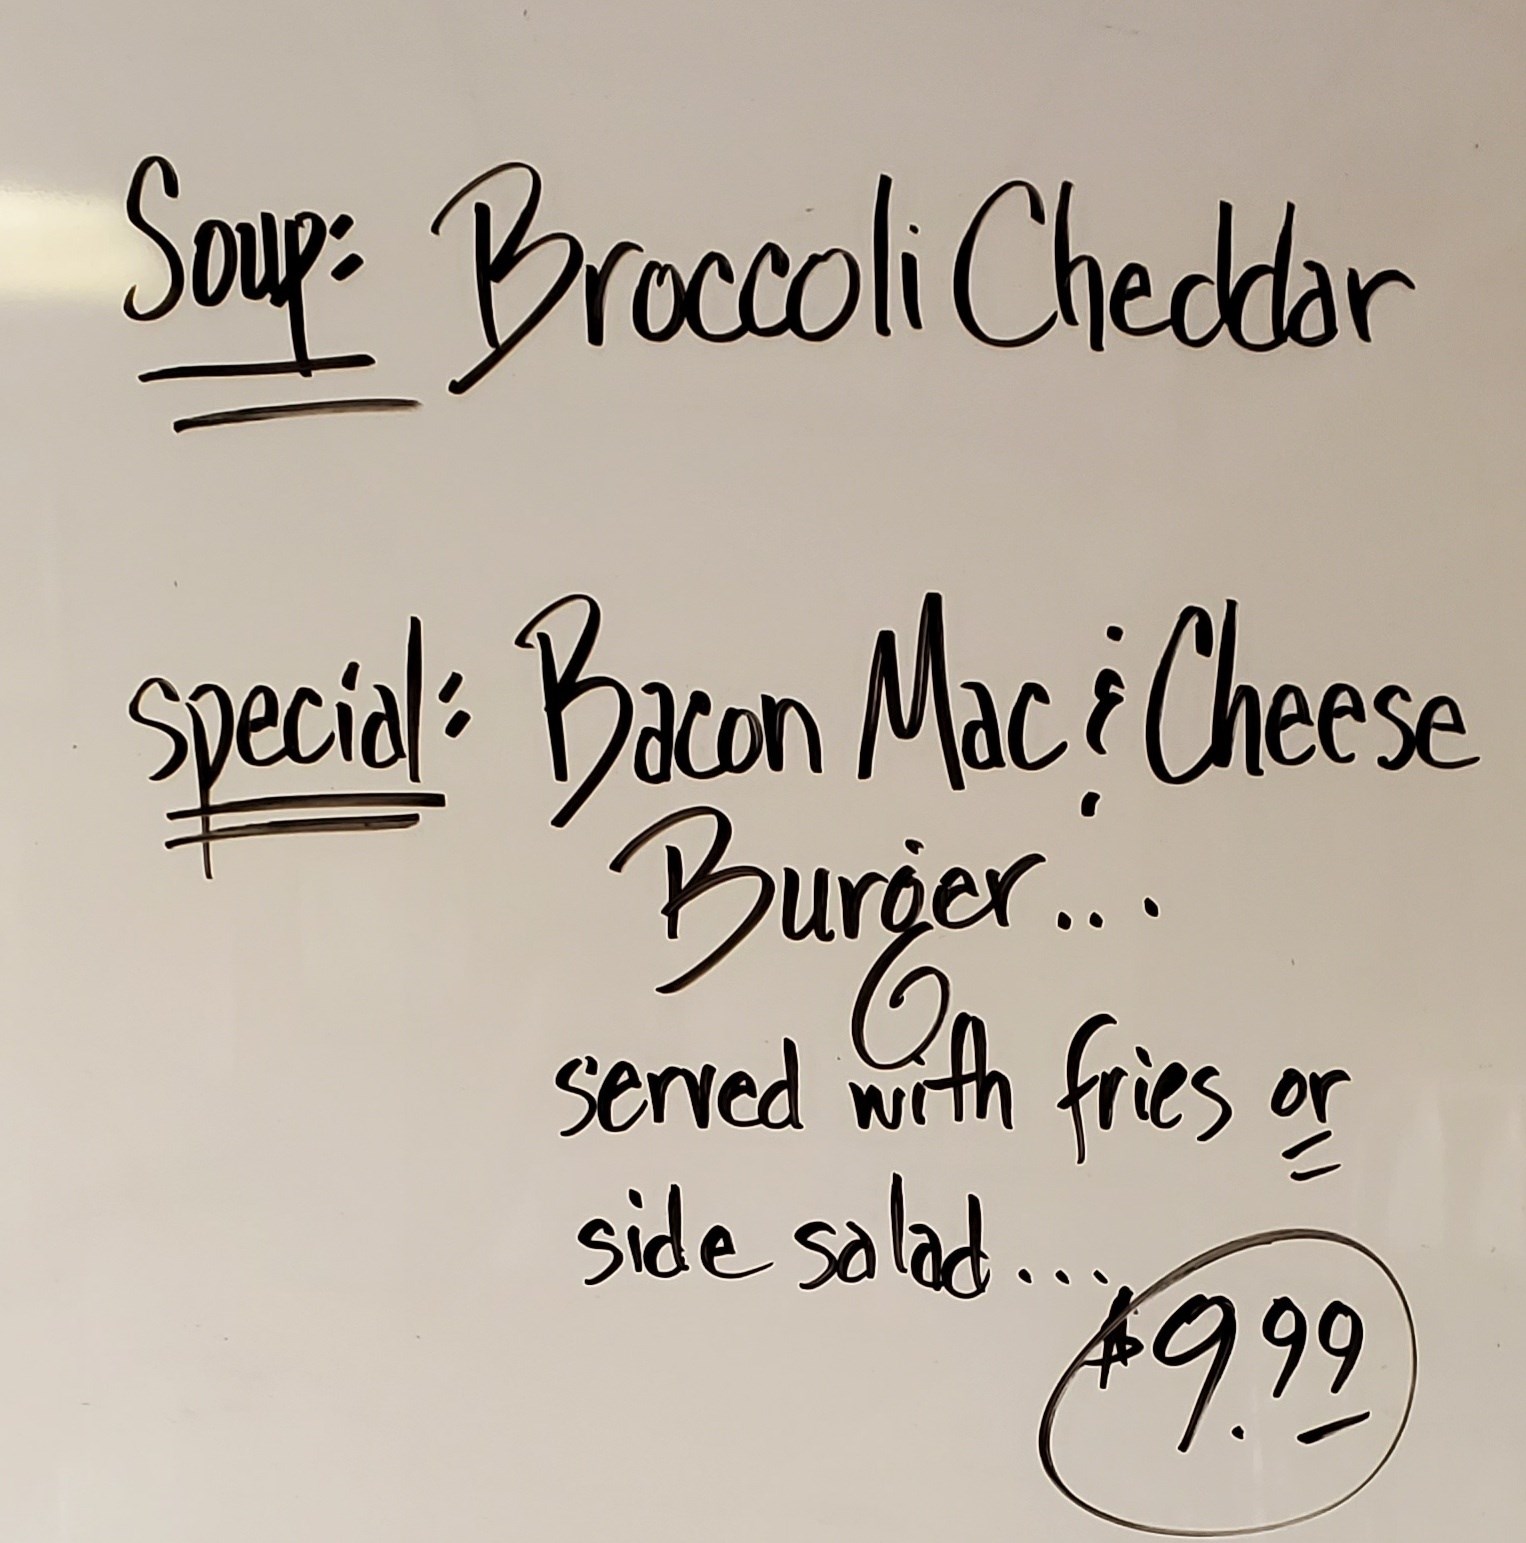 Soup: Broccoli Cheddar
special: Bacon Mac & Cheese
Burger...
served with fries or
side salad...
$9.99